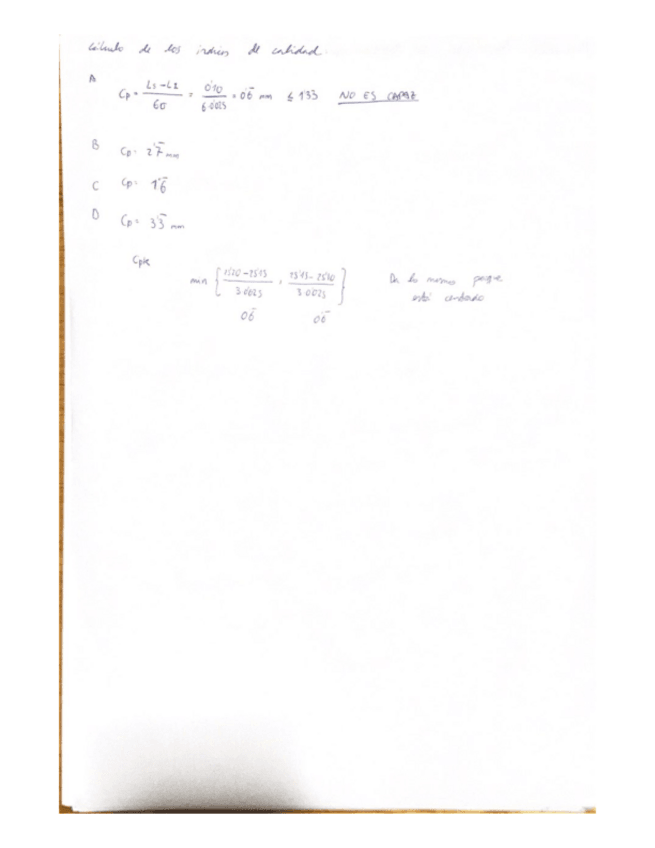 Cálculo de los índices de calidad.
A
Cp = LS-LI / 6σ = 0'10 / 6·0'025 = 0'6̄ mm ≤ 1'33 NO ES CAPAZ
B Cp = 2'7̄ mm
C Cp = 1'6̄
D Cp = 3'3̄ mm
Cpk
min { / 3·0'025 , / 3·0'025 } Da lo mismo porque
está centrado
0'6̄ 0'6̄